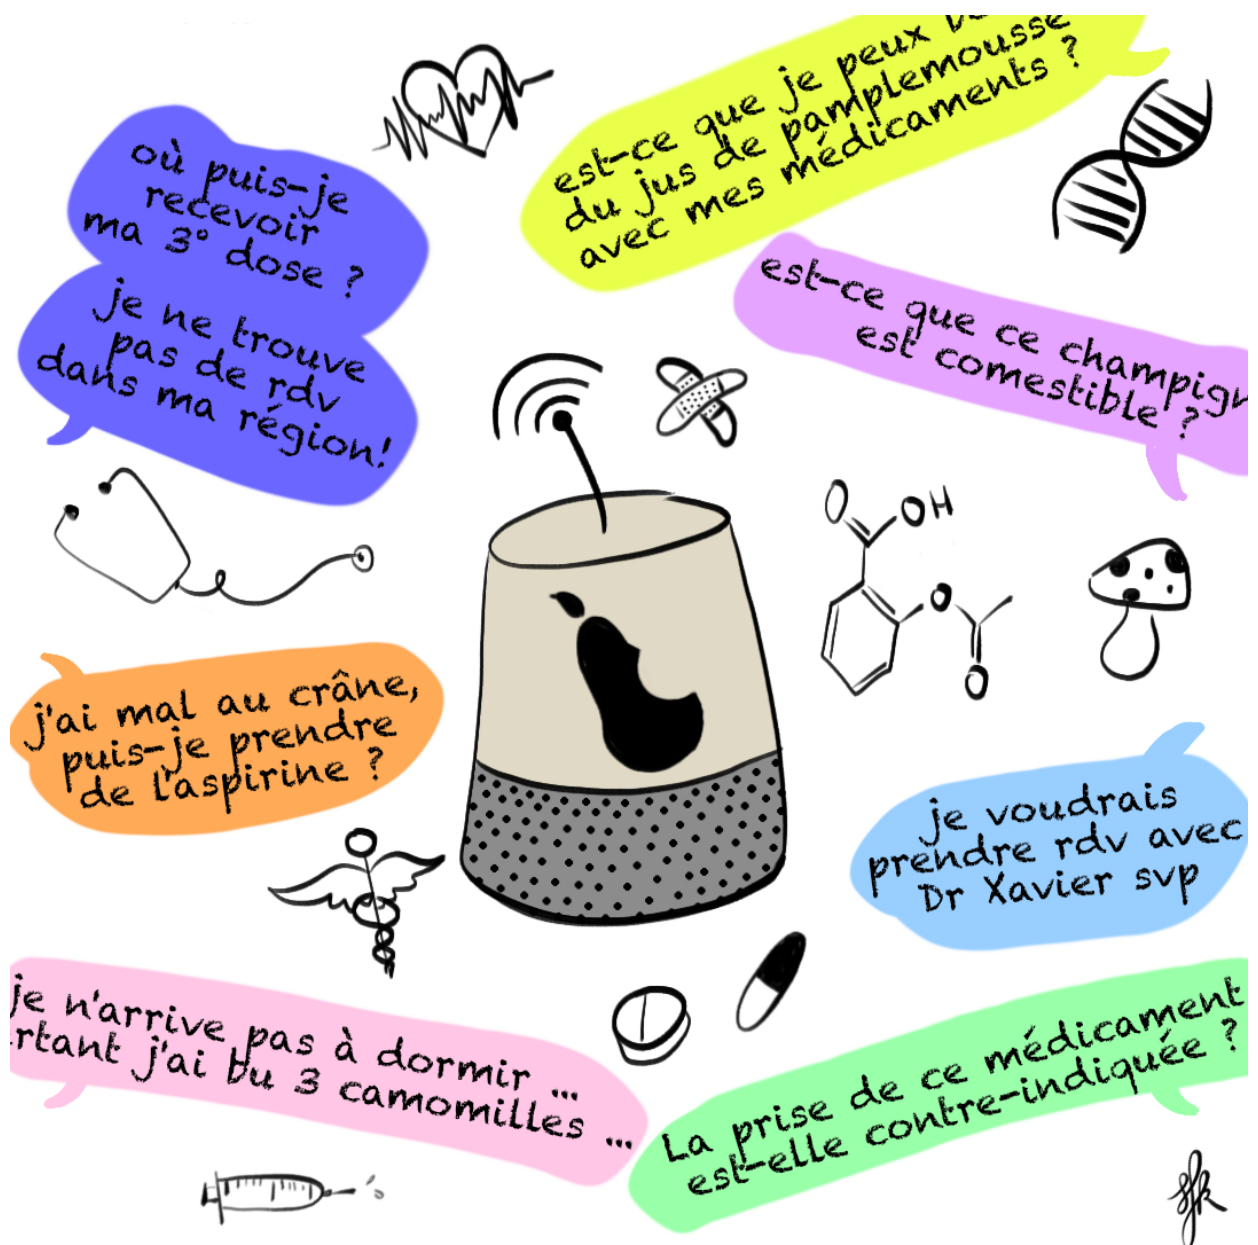 où puis-je
recevoir
ma 3° dose ?
je ne trouve
pas de rdv
dans ma région!
est-ce que je peux
du jus de pamplemousse
avec mes médicaments ?
est-ce que ce champign
est comestible ?
O
OH
O
O
j'ai mal au crâne,
puis-je prendre
de l'aspirine ?
je voudrais
prendre rdv avec
Dr Xavier svp
je n'arrive pas à dormir ...
rtant j'ai bu 3 camomilles ...
La prise de ce médicament
est-elle contre-indiquée ?